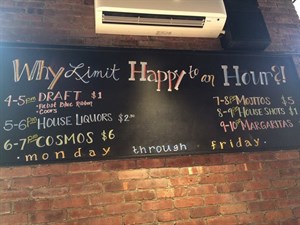 Why Limit Happy to an Hour?!
4-5pm DRAFT $1
Pabst Blue Ribbon
Coors
5-6pm HOUSE LIQUORS $2
6-7pm COSMOS $6
7-8pm MOJITOS $5
HOUSE SHOTS $1
MARGARITAS
monday through friday.